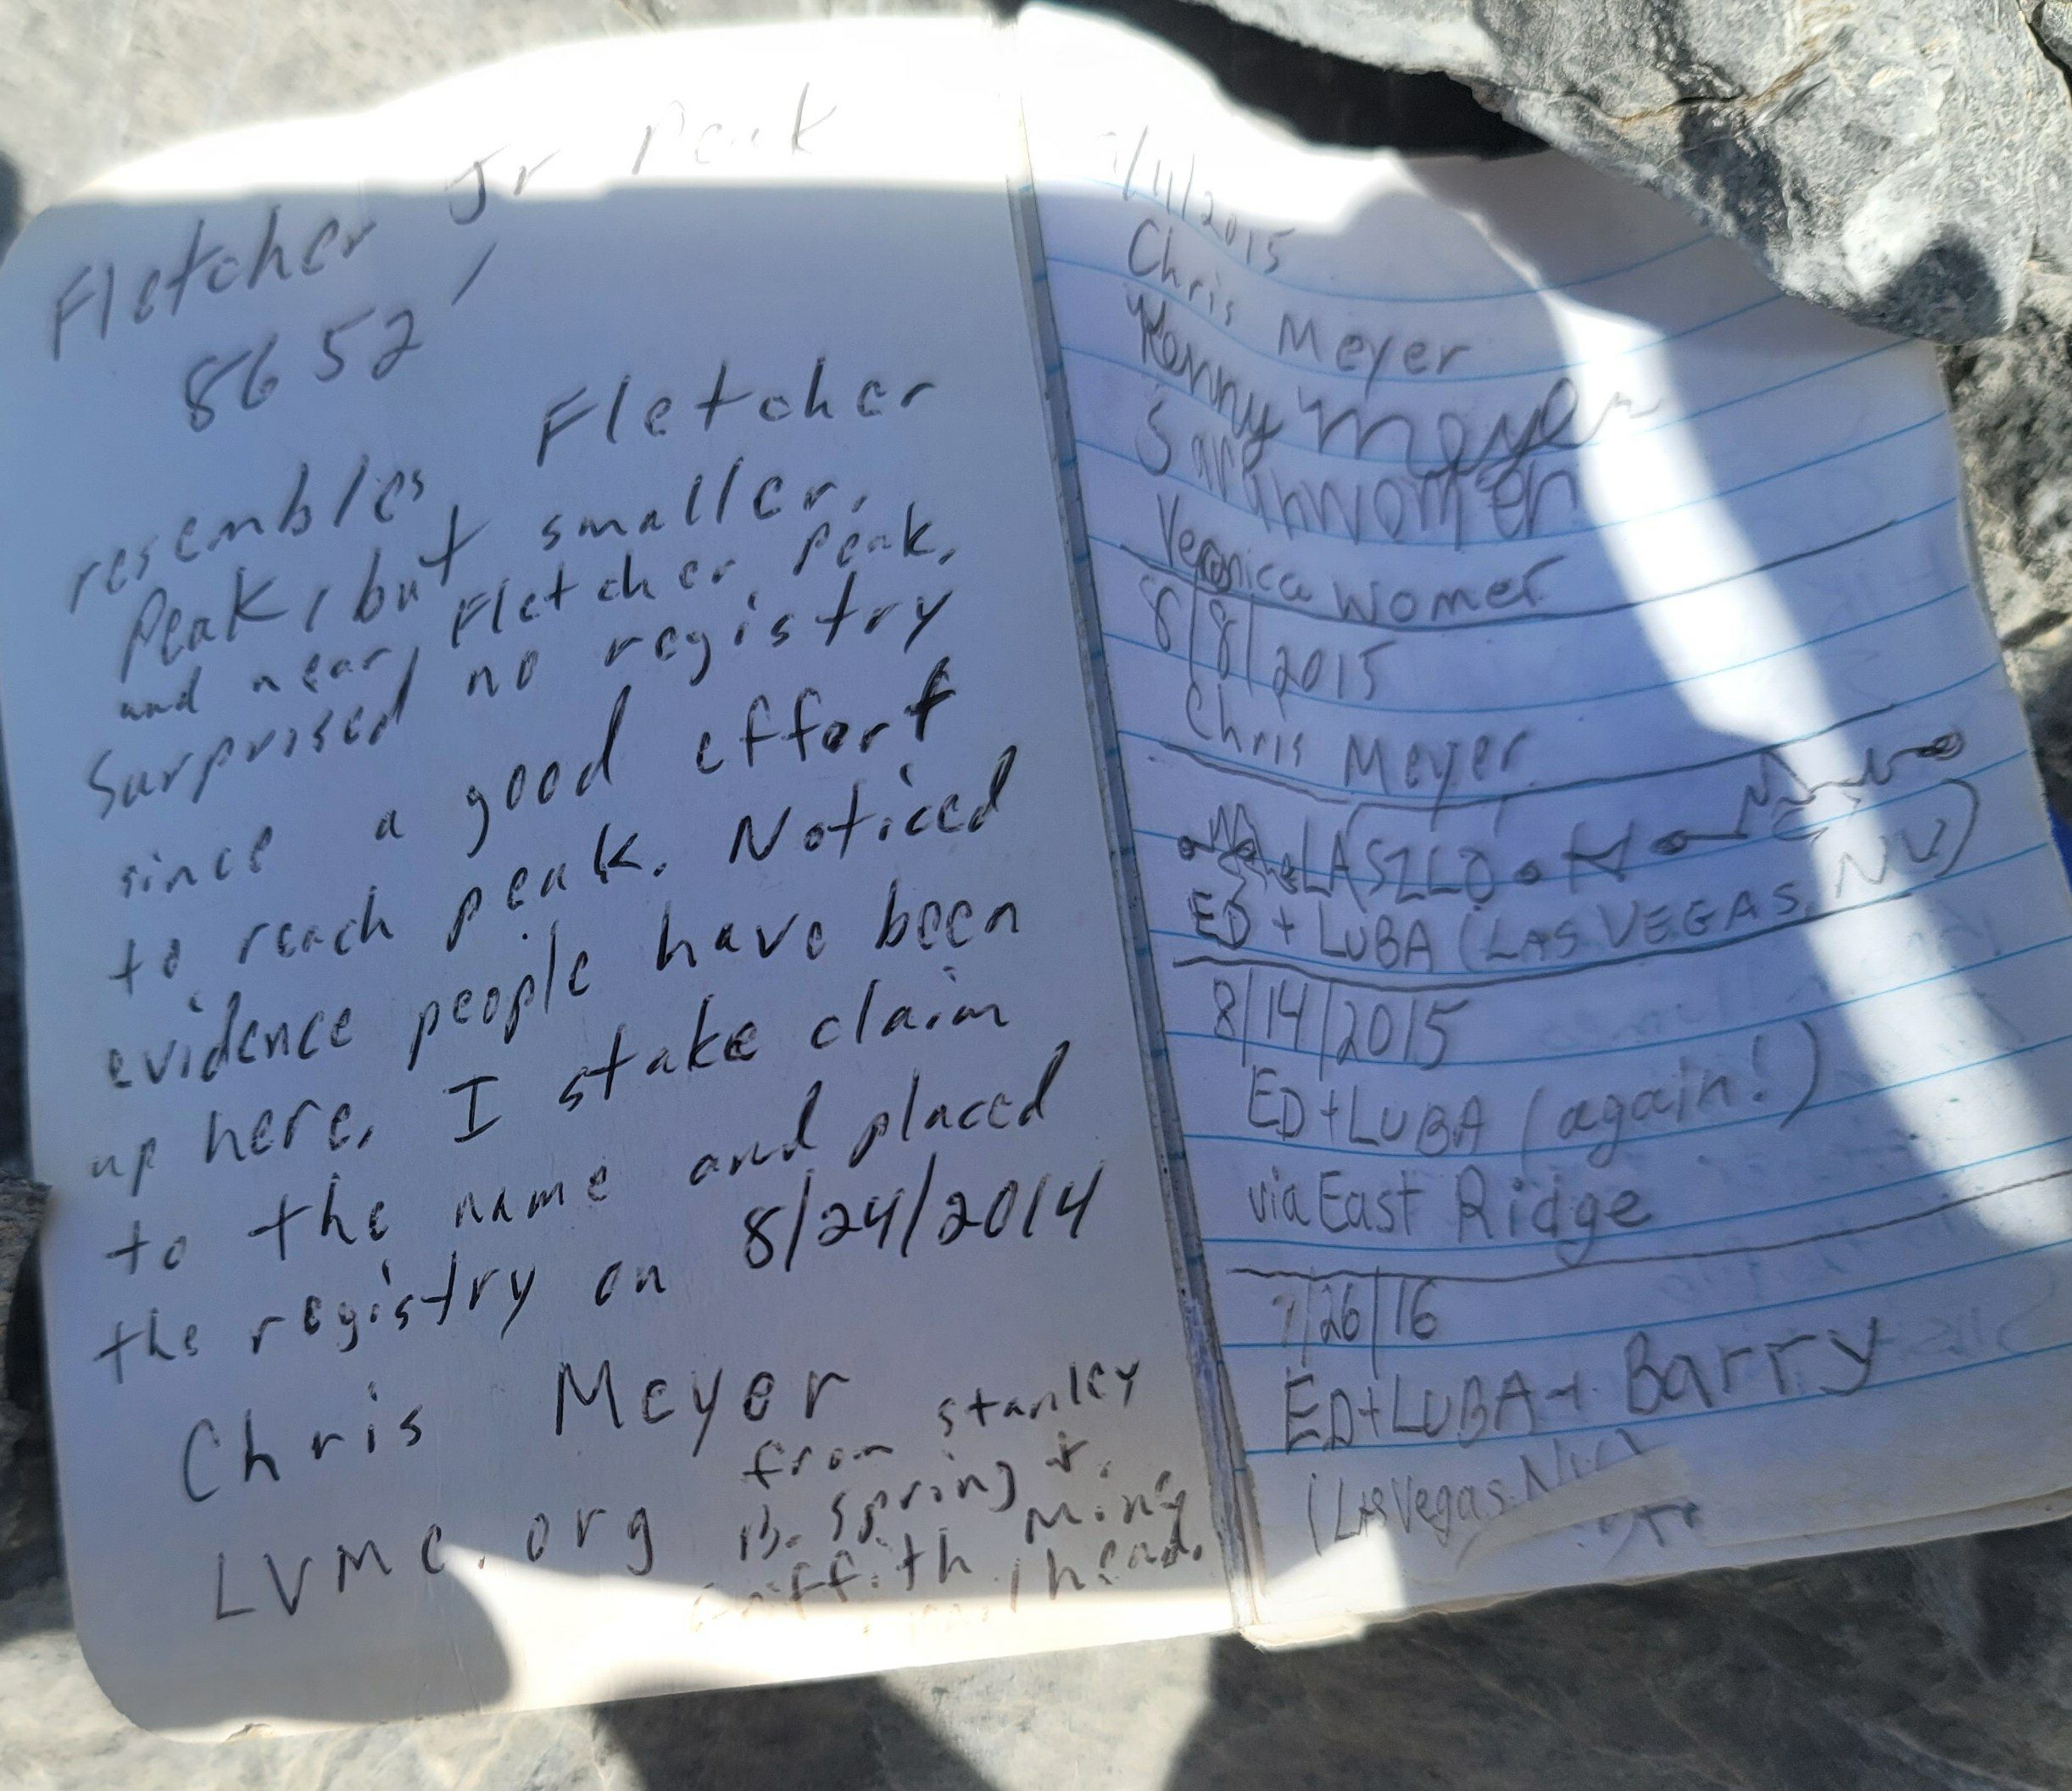 Fletcher Jr Peak
8652'
resembles Fletcher
Peak, but smaller,
and near Fletcher Peak.
Surprised no registry
since a good effort
to reach peak. Noticed
evidence people have been
up here. I stake claim
to the name and placed
the registry on 8/24/2014
Chris Meyer
LVMC.org
from Stanley
B. Spring &
Griffith Mine
/11/2015
Chris Meyer
Sarah Women
Veronica Womer
8/8/2015
Chris Meyer
LASZLO
ED + LUBA (LAS VEGAS, NV)
8/14/2015
ED + LUBA (again!)
via East Ridge
7/26/16
ED + LUBA + Barry
(Las Vegas, NV)